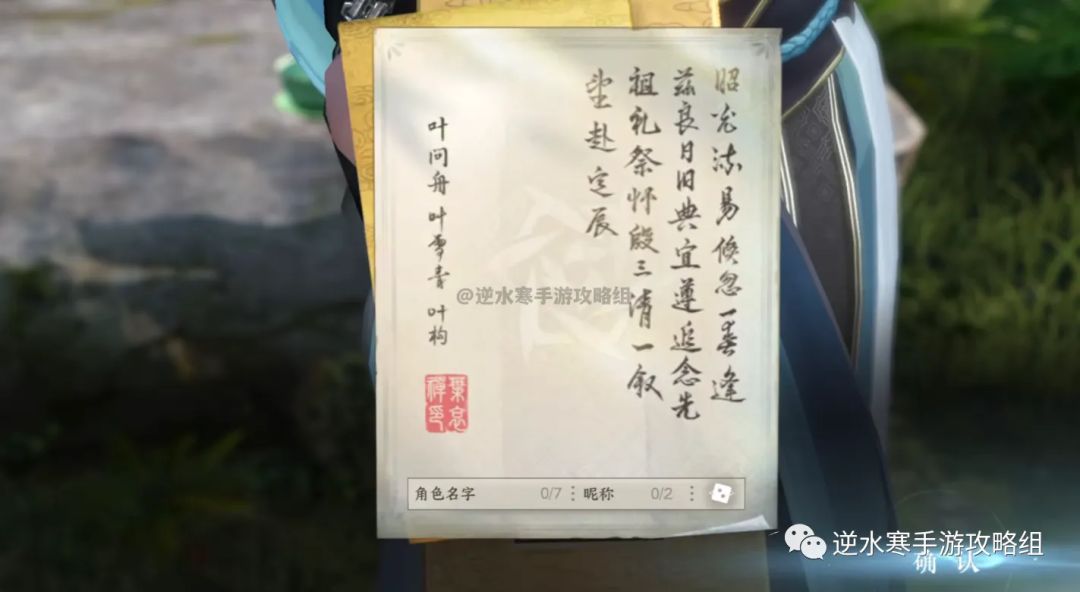 昭光流易倏忽一春逢
兹良日旧典宜遵追念先
祖礼祭师殿三清一叙
望赴定辰
叶问舟 叶雪青 叶构
@逆水寒手游攻略组
角色名字 0/7 昵称 0/2
逆水寒手游攻略组
确认